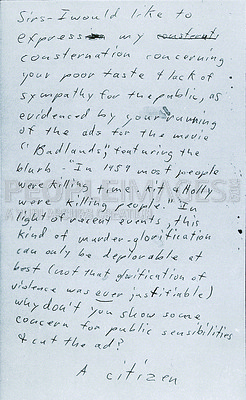 Sirs - I would like to
express my
consternation concerning
your poor taste & lack of
sympathy for the public, as
evidenced by your running
of the ads for the movie
"Badlands," featuring the
blurb - "In 1959 most people
were killing time. Kit & Holly
were killing people." In
light of recent events, this
kind of murder-glorification
can only be deplorable at
best (not that glorification of
violence was ever justifiable)
why don't you show some
concern for public sensibilities
& cut the ad?
A citizen